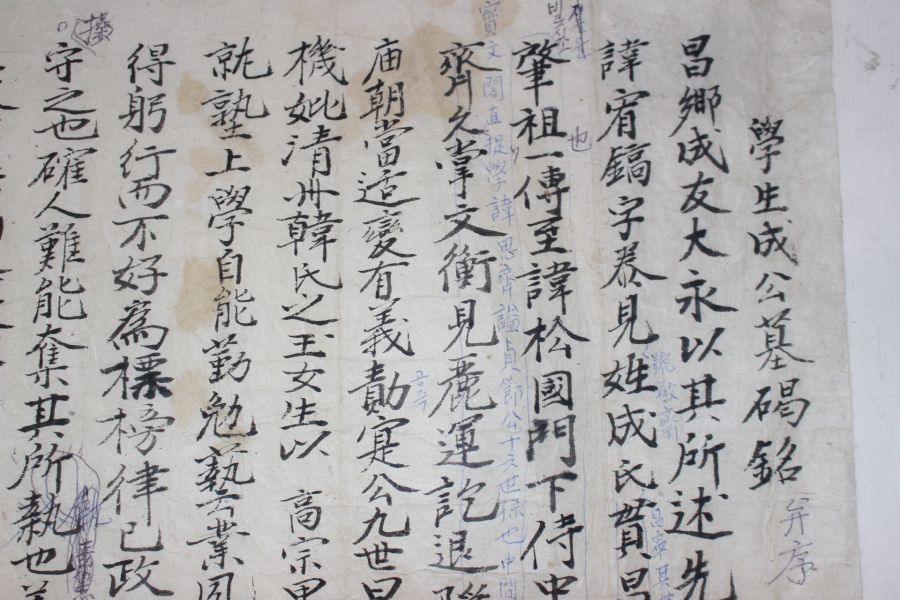 學生成公墓碣銘 并序
昌鄉成友大永以其所述先
號敬齋
諱宥鎬字泰見姓成氏貫昌
也
肇祖一傳至諱松國門下侍中
寶文閣直提學諱思齊諡貞節公十六世孫也中間
齊久掌文衡見麗運訖退
공극
庙朝當适變有義勣寔公九世曰
機妣清州韓氏之玉女生以 高宗甲
就塾上學自能勤勉藝業同
得躬行而不好爲標榜律己政
守之也確人難能奪其所執也